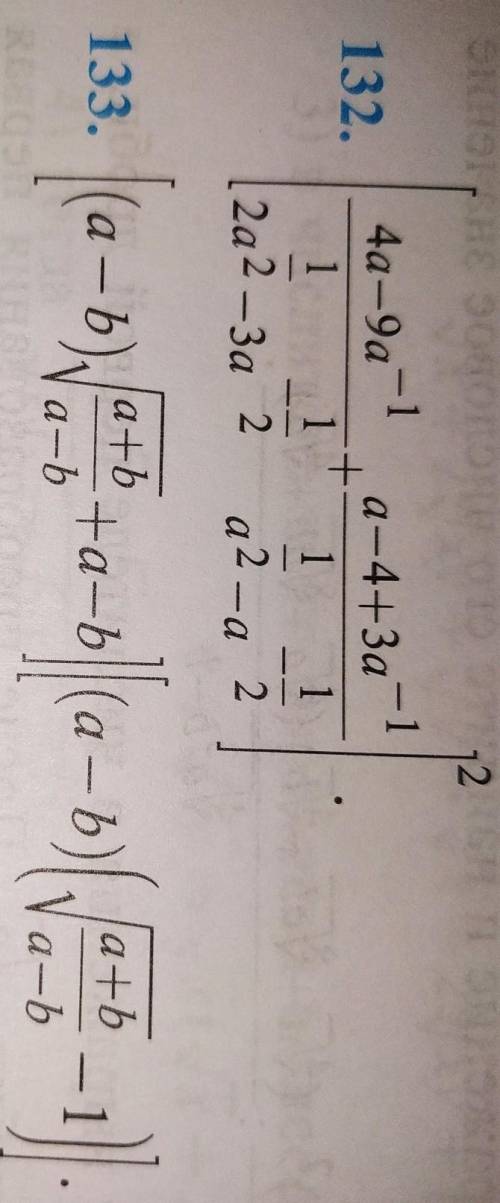 132. [(4a−9a⁻¹)/(2a^(1/2)−3a^(−1/2)) + (a−4+3a⁻¹)/(a^(1/2)−a^(−1/2))]².
133. [(a−b)√((a+b)/(a−b))+a−b][(a−b)(√((a+b)/(a−b))−1)].